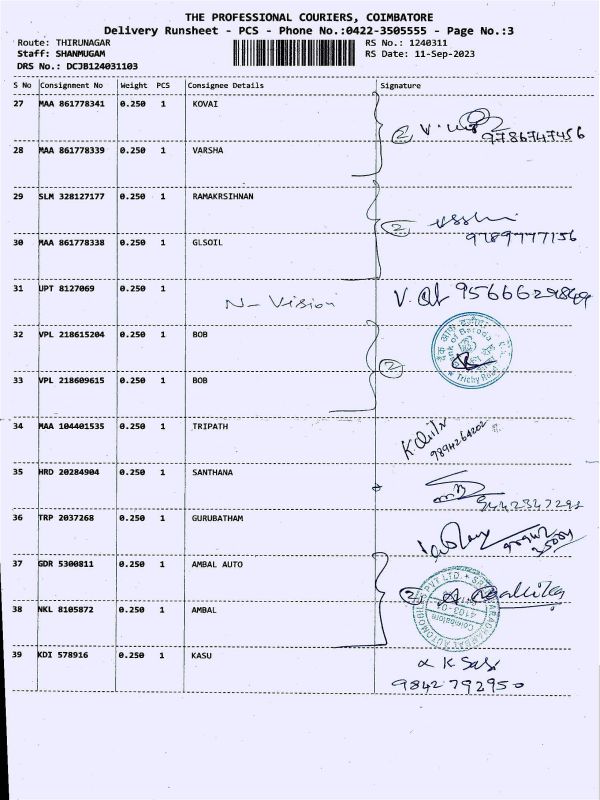 THE PROFESSIONAL COURIERS, COIMBATORE
Delivery Runsheet - PCS - Phone No.:0422-3505555 - Page No.:3
Route: THIRUNAGAR RS No.: 1240311
Staff: SHANMUGAM RS Date: 11-Sep-2023
DRS No.: DCJB124031103
S No Consignment No Weight PCS Consignee Details Signature
27 MAA 861778341 0.250 1 KOVAI
2 9786747456
28 MAA 861778339 0.250 1 VARSHA
29 SLM 328127177 0.250 1 RAMAKRSIHNAN
2
30 MAA 861778338 0.250 1 GLSOIL 9789777156
31 UPT 8127069 0.250 1 N- Vision 9566629849
32 VPL 218615204 0.250 1 BOB
Bank of Baroda
Trichy Road
2
33 VPL 218609615 0.250 1 BOB
34 MAA 104401535 0.250 1 TRIPATH
9894264202
35 HRD 20284904 0.250 1 SANTHANA
9442347291
36 TRP 2037268 0.250 1 GURUBATHAM
37 GDR 5300811 0.250 1 AMBAL AUTO
2
38 NKL 8105872 0.250 1 AMBAL
39 KDI 578916 0.250 1 KASU
9842792950